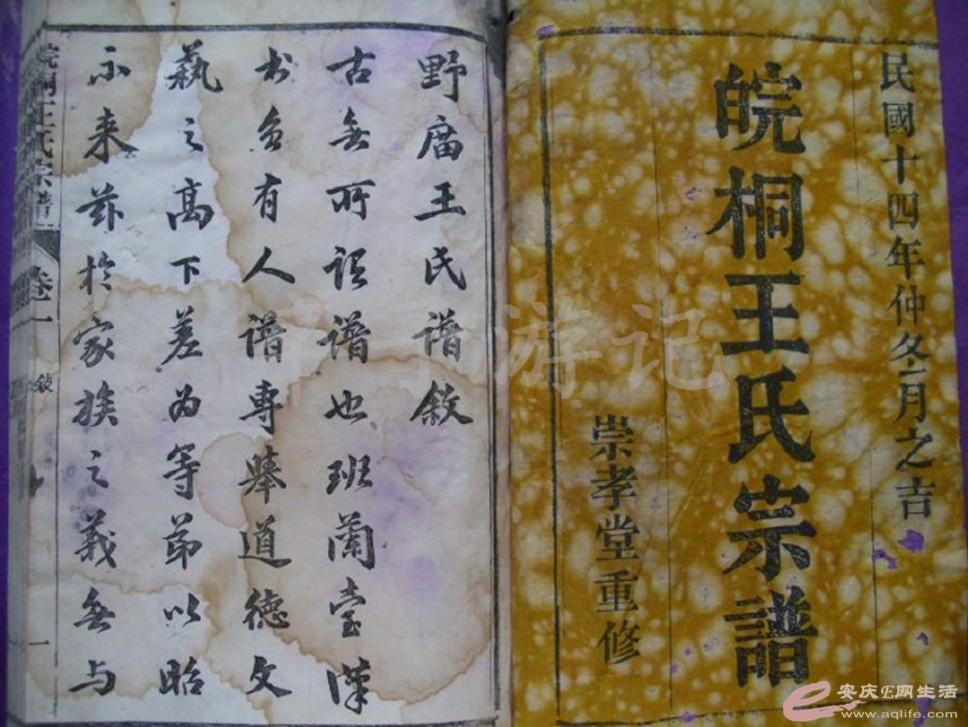 民國十四年仲冬月之吉
皖桐王氏宗譜
崇孝堂重修
野王氏譜敘
古無所謂譜也班蘭臺漢
書有人譜專舉道德文
藝之高下差為等第以昭
示来茲於家族之義無与
皖桐王氏宗譜 卷一 敘 一
游记
安庆E网生活
www.aqlife.com